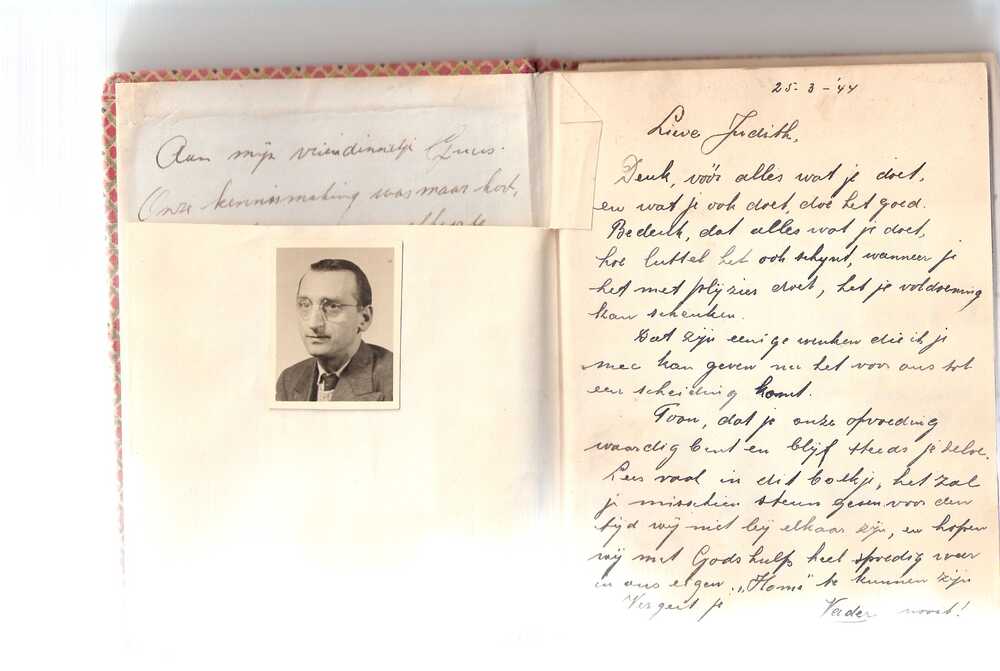 Aan mijn vriendinnetje Guus.
Onze kennismaking was maar kort,
25-3-'44
Lieve Judith,
Denk, vóór alles wat je doet,
en wat je ook doet, doe het goed.
Bedenk, dat alles wat je doet,
hoe luttel het ook schijnt, wanneer je
het met plijzier doet, het je voldoening
kan schenken.
Dat zijn eenige wenken die ik je
mee kan geven nu het voor ons tot
een scheiding komt.
Toon, dat je onze opvoeding
waardig bent en blijf steeds je zelve.
Lees vaak in dit boekje, het zal
je misschien steun geven voor den
tijd wij niet bij elkaar zijn, en hopen
wij met Gods hulp heel spoedig weer
in ons eigen "Home" te kunnen zijn
Vergeet je Vader nooit!